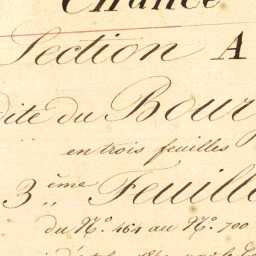 Section A
dite du Bour
en trois feuilles
3ème Feuille
du N° 464 au N° 700